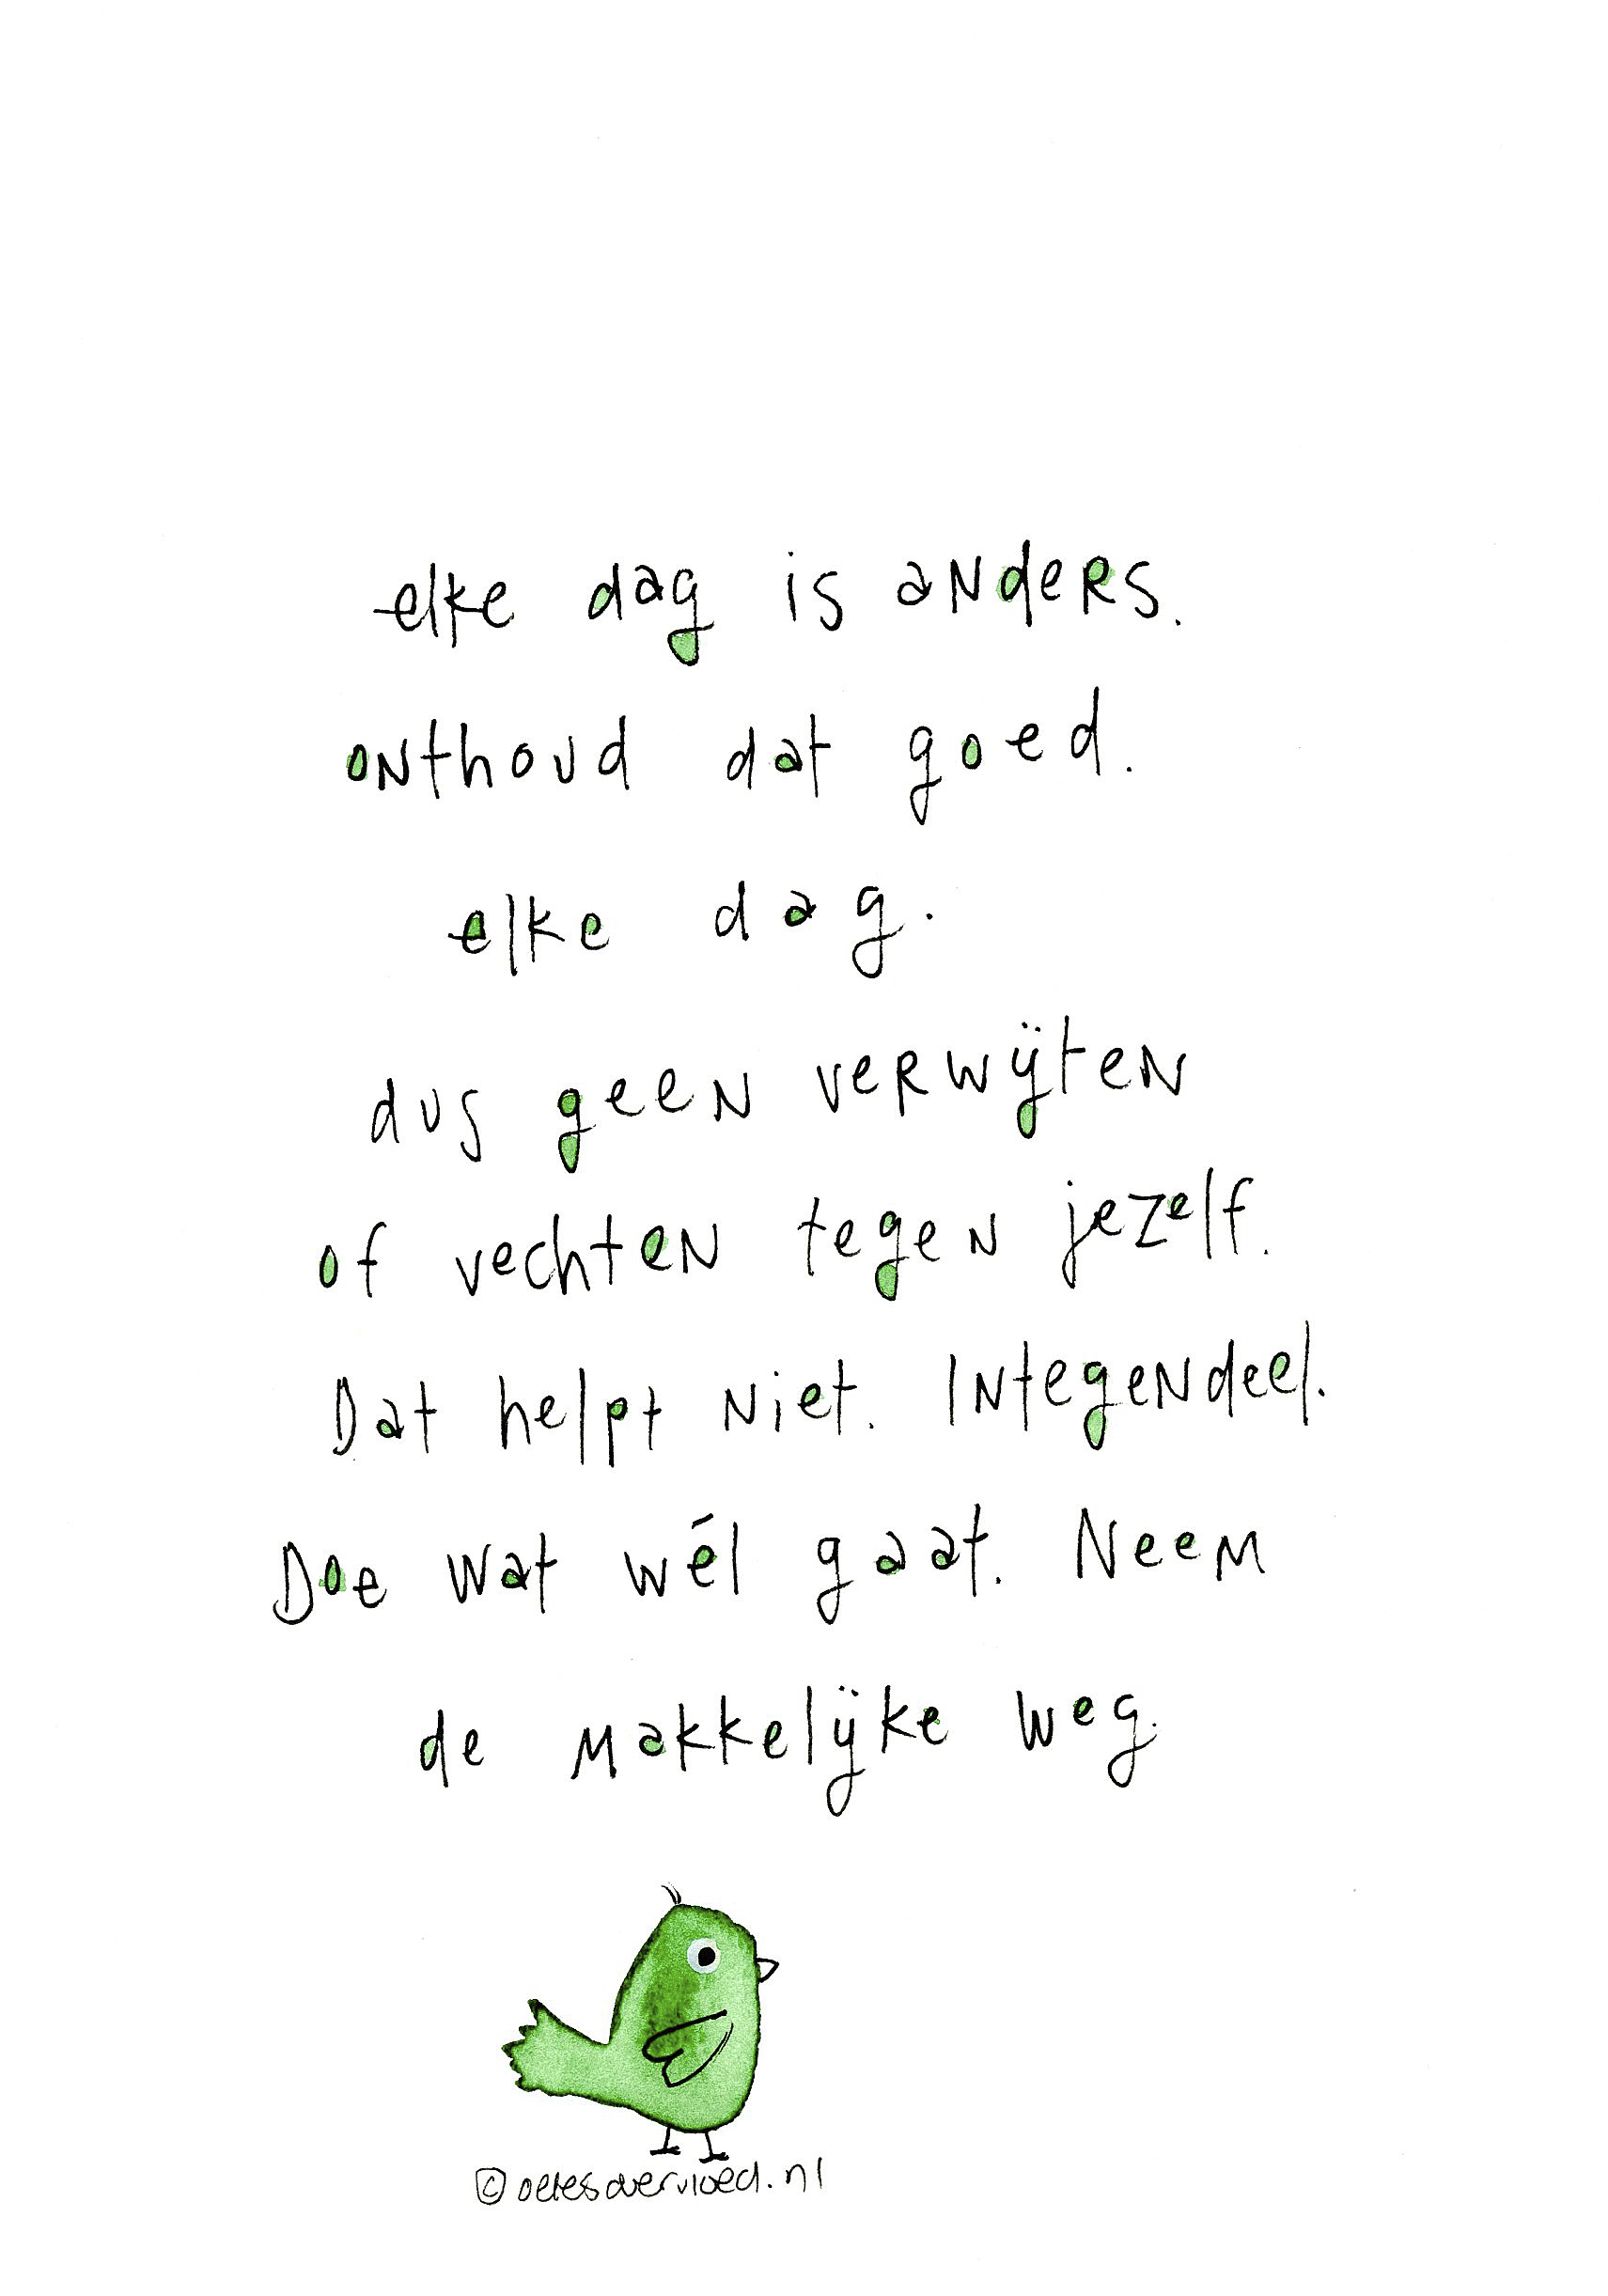 elke dag is anders.
onthoud dat goed.
elke dag.
dus geen verwijten
of vechten tegen jezelf.
Dat helpt niet. Integendeel.
Doe wat wél gaat. Neem
de makkelijke weg.
©